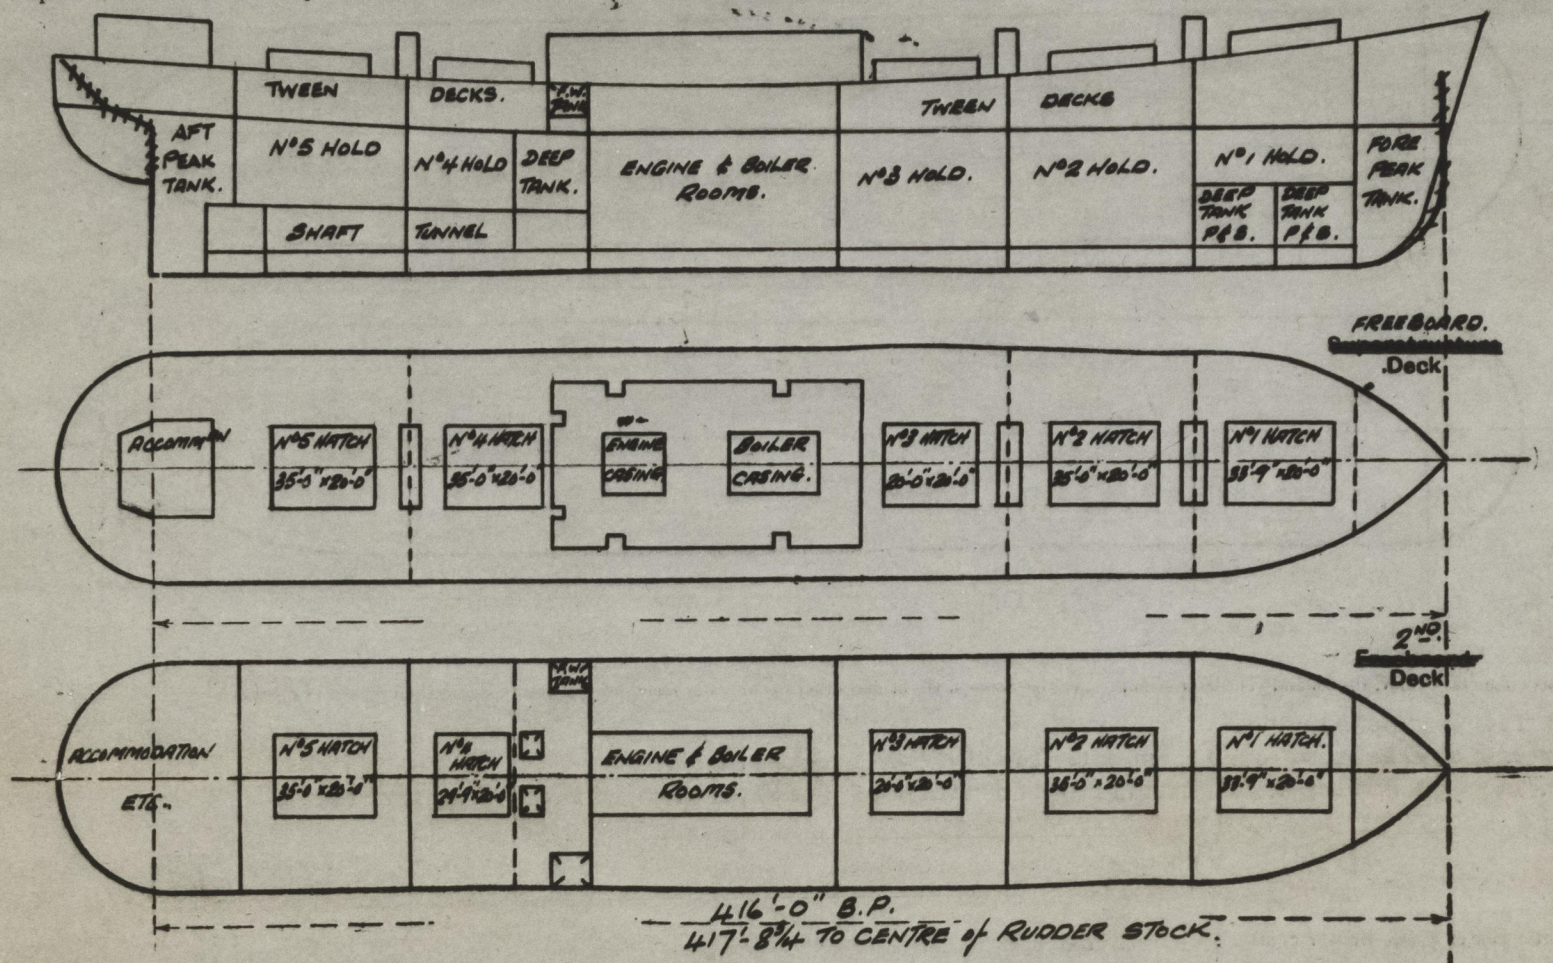 TWEEN DECKS.
F.W. TANK
TWEEN DECKS
AFT
PEAK
TANK.
Nº5 HOLD
Nº4 HOLD
DEEP
TANK.
ENGINE & BOILER
ROOMS.
Nº3 HOLD.
Nº2 HOLD.
Nº1 HOLD.
DEEP
TANK
P&S.
DEEP
TANK
P&S.
FORE
PEAK
TANK.
SHAFT TUNNEL
FREEBOARD.
Superstructure
Deck
ACCOMMTN
Nº5 HATCH
35'-0"x20'-0"
Nº4 HATCH
35'-0"x20'-0"
ENGINE
CASING
BOILER
CASING.
Nº3 HATCH
20'-0"x20'-0"
Nº2 HATCH
35'-0"x20'-0"
Nº1 HATCH
33'-9"x20'-0"
2ND
Freeboard
Deck
F.W.
TANK
ACCOMMODATION
ETC.
Nº5 HATCH
35'-0"x20'-0"
Nº4
HATCH
24'-9"x20'-0"
ENGINE & BOILER
ROOMS.
Nº3 HATCH
20'-0"x20'-0"
Nº2 HATCH
35'-0"x20'-0"
Nº1 HATCH.
33'-9"x20'-0"
416'-0" B.P.
417'-8¾ TO CENTRE of RUDDER STOCK.